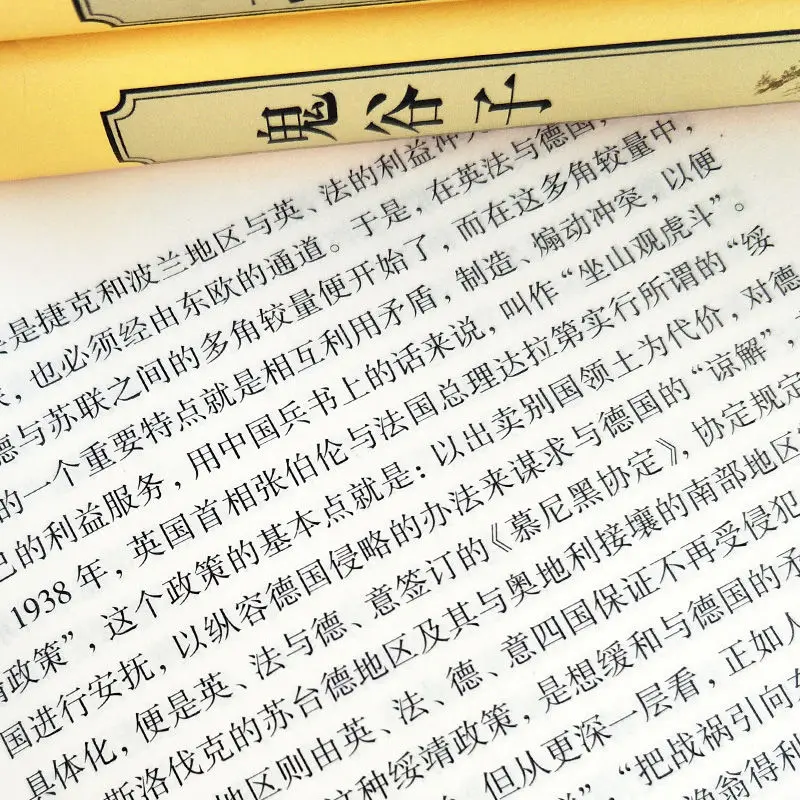 鬼谷子
是捷克和波兰地区与英、法的利益冲
，也必须经由东欧的通道。于是，在英法与德国，
德与苏联之间的多角较量便开始了，而在这多角较量中，
的一个重要特点就是相互利用矛盾，制造、煽动冲突，以便
己的利益服务，用中国兵书上的话来说，叫作“坐山观虎斗”。
1938 年，英国首相张伯伦与法国总理达拉第实行所谓的“绥
靖政策”，这个政策的基本点就是：以出卖别国领土为代价，对德
国进行安抚，以纵容德国侵略的办法来谋求与德国的“谅解”，
具体化，便是英、法与德、意签订的《慕尼黑协定》，协定规定
斯洛伐克的苏台德地区及其与奥地利接壤的南部地区
地区则由英、法、德、意四国保证不再受侵犯
这种绥靖政策，是想缓和与德国的矛
但从更深一层看，正如人
“把战祸引向
渔翁得利